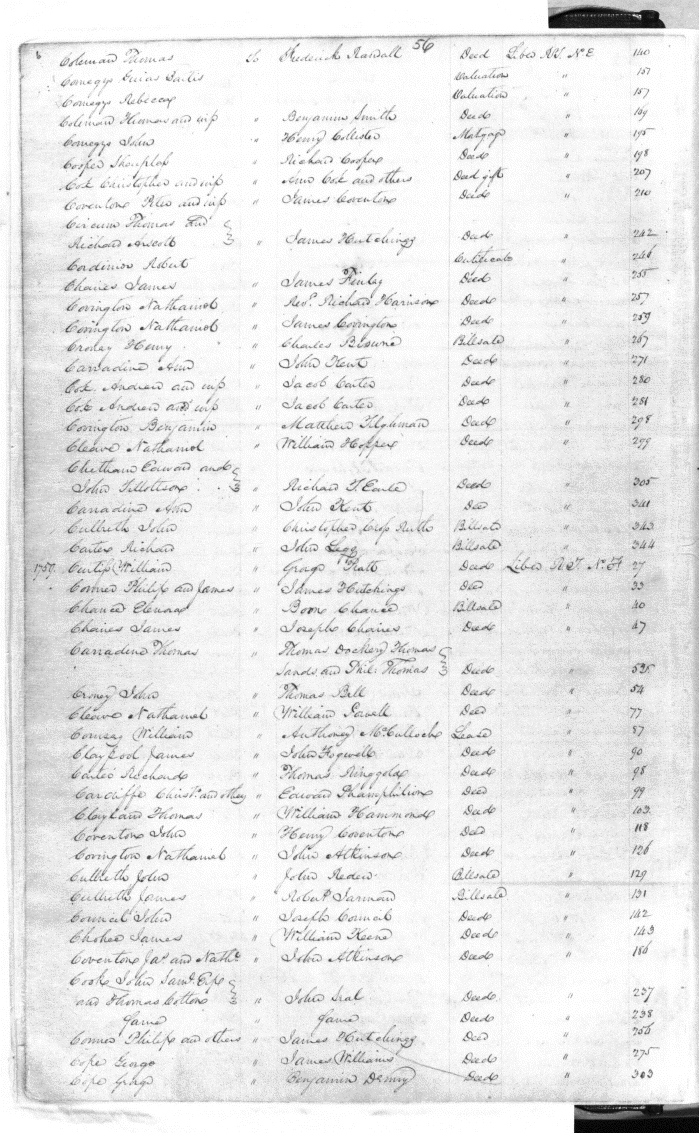 56
Coleman Thomas to Frederick Randall Deed Liber RT. No. E 140
Comegys Guias Bartis Valuation " 157
Comegys Rebecca Valuation " 157
Coleman Thomas and wife " Benjamin Smith Deed " 169
Comegys John " Henry Collister Matgage " 195
Cooper Sharplof " Richard Cooper Deed " 198
Cox Christopher and wife " Ann Cox and others Deed gift " 207
Coventon Peter and wife " James Coventon Deed " 210
Thomas
Richard " James Hutchings Deed " 242
Robert Certificate " 246
Chaires James " James Finlay Deed " 255
Covington Nathaniel " Revd. Richard Harrison Deed " 257
Covington Nathaniel " James Covington Deed " 259
Croney Henry " Charles Browne Billsale " 267
Carradine Ann " John Kent Deed " 271
Cox Andrew and wife " Jacob Carter Deed " 280
Cox Andrew and wife " Jacob Carter Deed " 281
Covington Benjamin " Matthew Tilghman Deed " 298
Cleave Nathaniel " William Hopper Deed " 299
Chetham Edward and
John Tillottson " Richard T. Earle Deed " 305
Carradine Ann " John Kent Deed " 341
Culbreth John " Christopher Cross Ruth Billsale " 343
Carter Richard " John Legg Billsale " 344
1759. Curtis William " George Hall Deed Liber R.T. No. F 27
Conner Philip and James " James Hutchings Deed " 33
Chance Elenor " Boon Chance Billsale " 40
Chaires James " Joseph Chaires Deed " 47
Carradine Thomas " Thomas Dockery Thomas
Sands and Phil. Thomas Deed " 52
Croney John " Thomas Bell Deed " 54
Cleave Nathaniel " William Sewell Deed " 77
Comsey William " Anthoney McCulloch Lease " 87
Claypool James " John Fogwell Deed " 90
Carter Richard " Thomas Ringgold Deed " 98
Cardiffe Christr. and others " Edward Thamphilion Deed " 99
Clayland Thomas " William Hammond Deed " 103
Coventon John " Henry Coventon Deed " 118
Covington Nathaniel " John Atkinson Deed " 126
Culbreth John " John Reden Billsale " 129
Culbreth James " Robert Jarman Billsale " 131
Council John " Joseph Council Deed " 142
Chohee James " William Keene Deed " 143
Coventon Jas. and Nathl. " John Atkinson Deed " 186
Cook John Saml.
and Thomas Cotton " John Seal Deed " 237
Same " Same Deed " 238
Conner Philip and others " James Hutchings Deed " 256
Cope George " James Williams Deed " 275
Cope George " Benjamin Denny Deed " 303